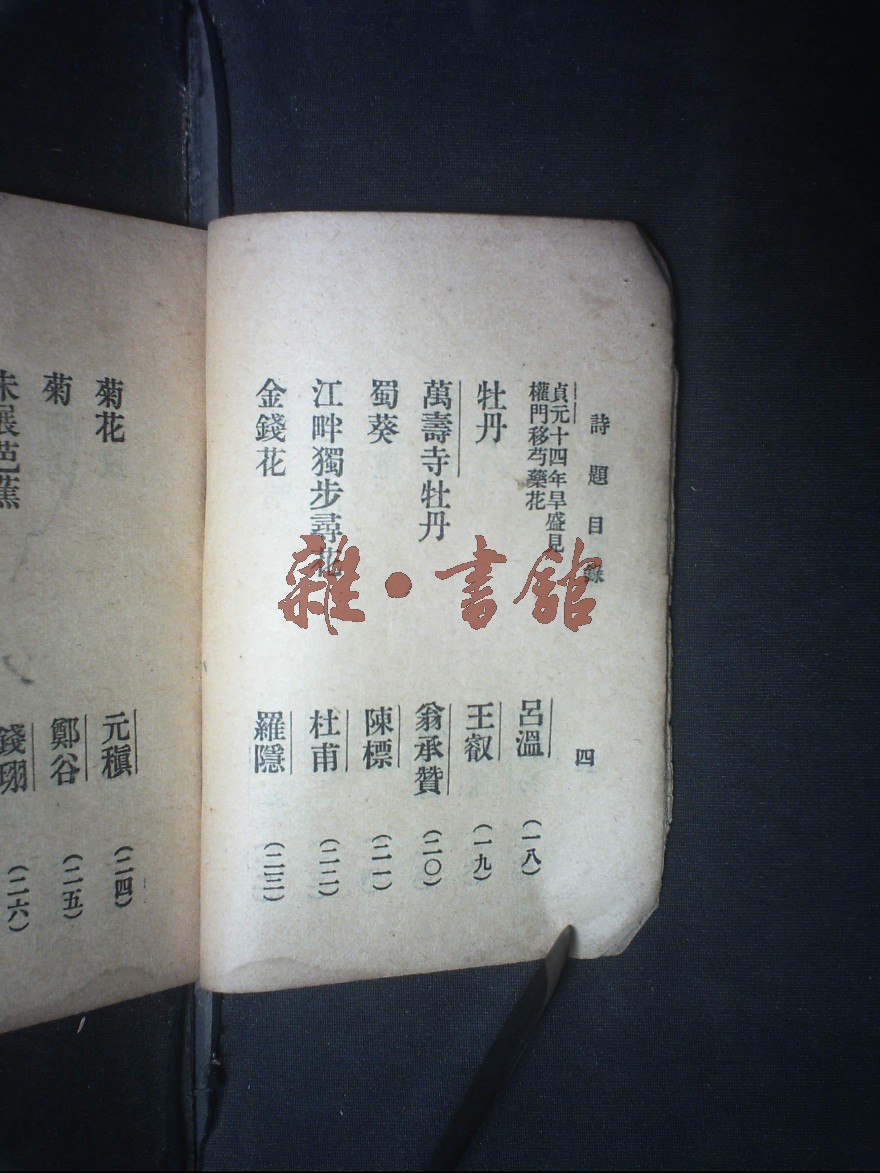 詩題目錄 四
貞元十四年旱盛見
權門移芍藥花 呂溫 (一八)
牡丹 王叡 (一九)
萬壽寺牡丹 翁承贊 (二〇)
蜀葵 陳標 (二一)
江畔獨步尋花 杜甫 (二二)
金錢花 羅隱 (二三)
菊花 元稹 (二四)
菊 鄭谷 (二五)
未展芭蕉 錢珝 (二六)
雜·書館